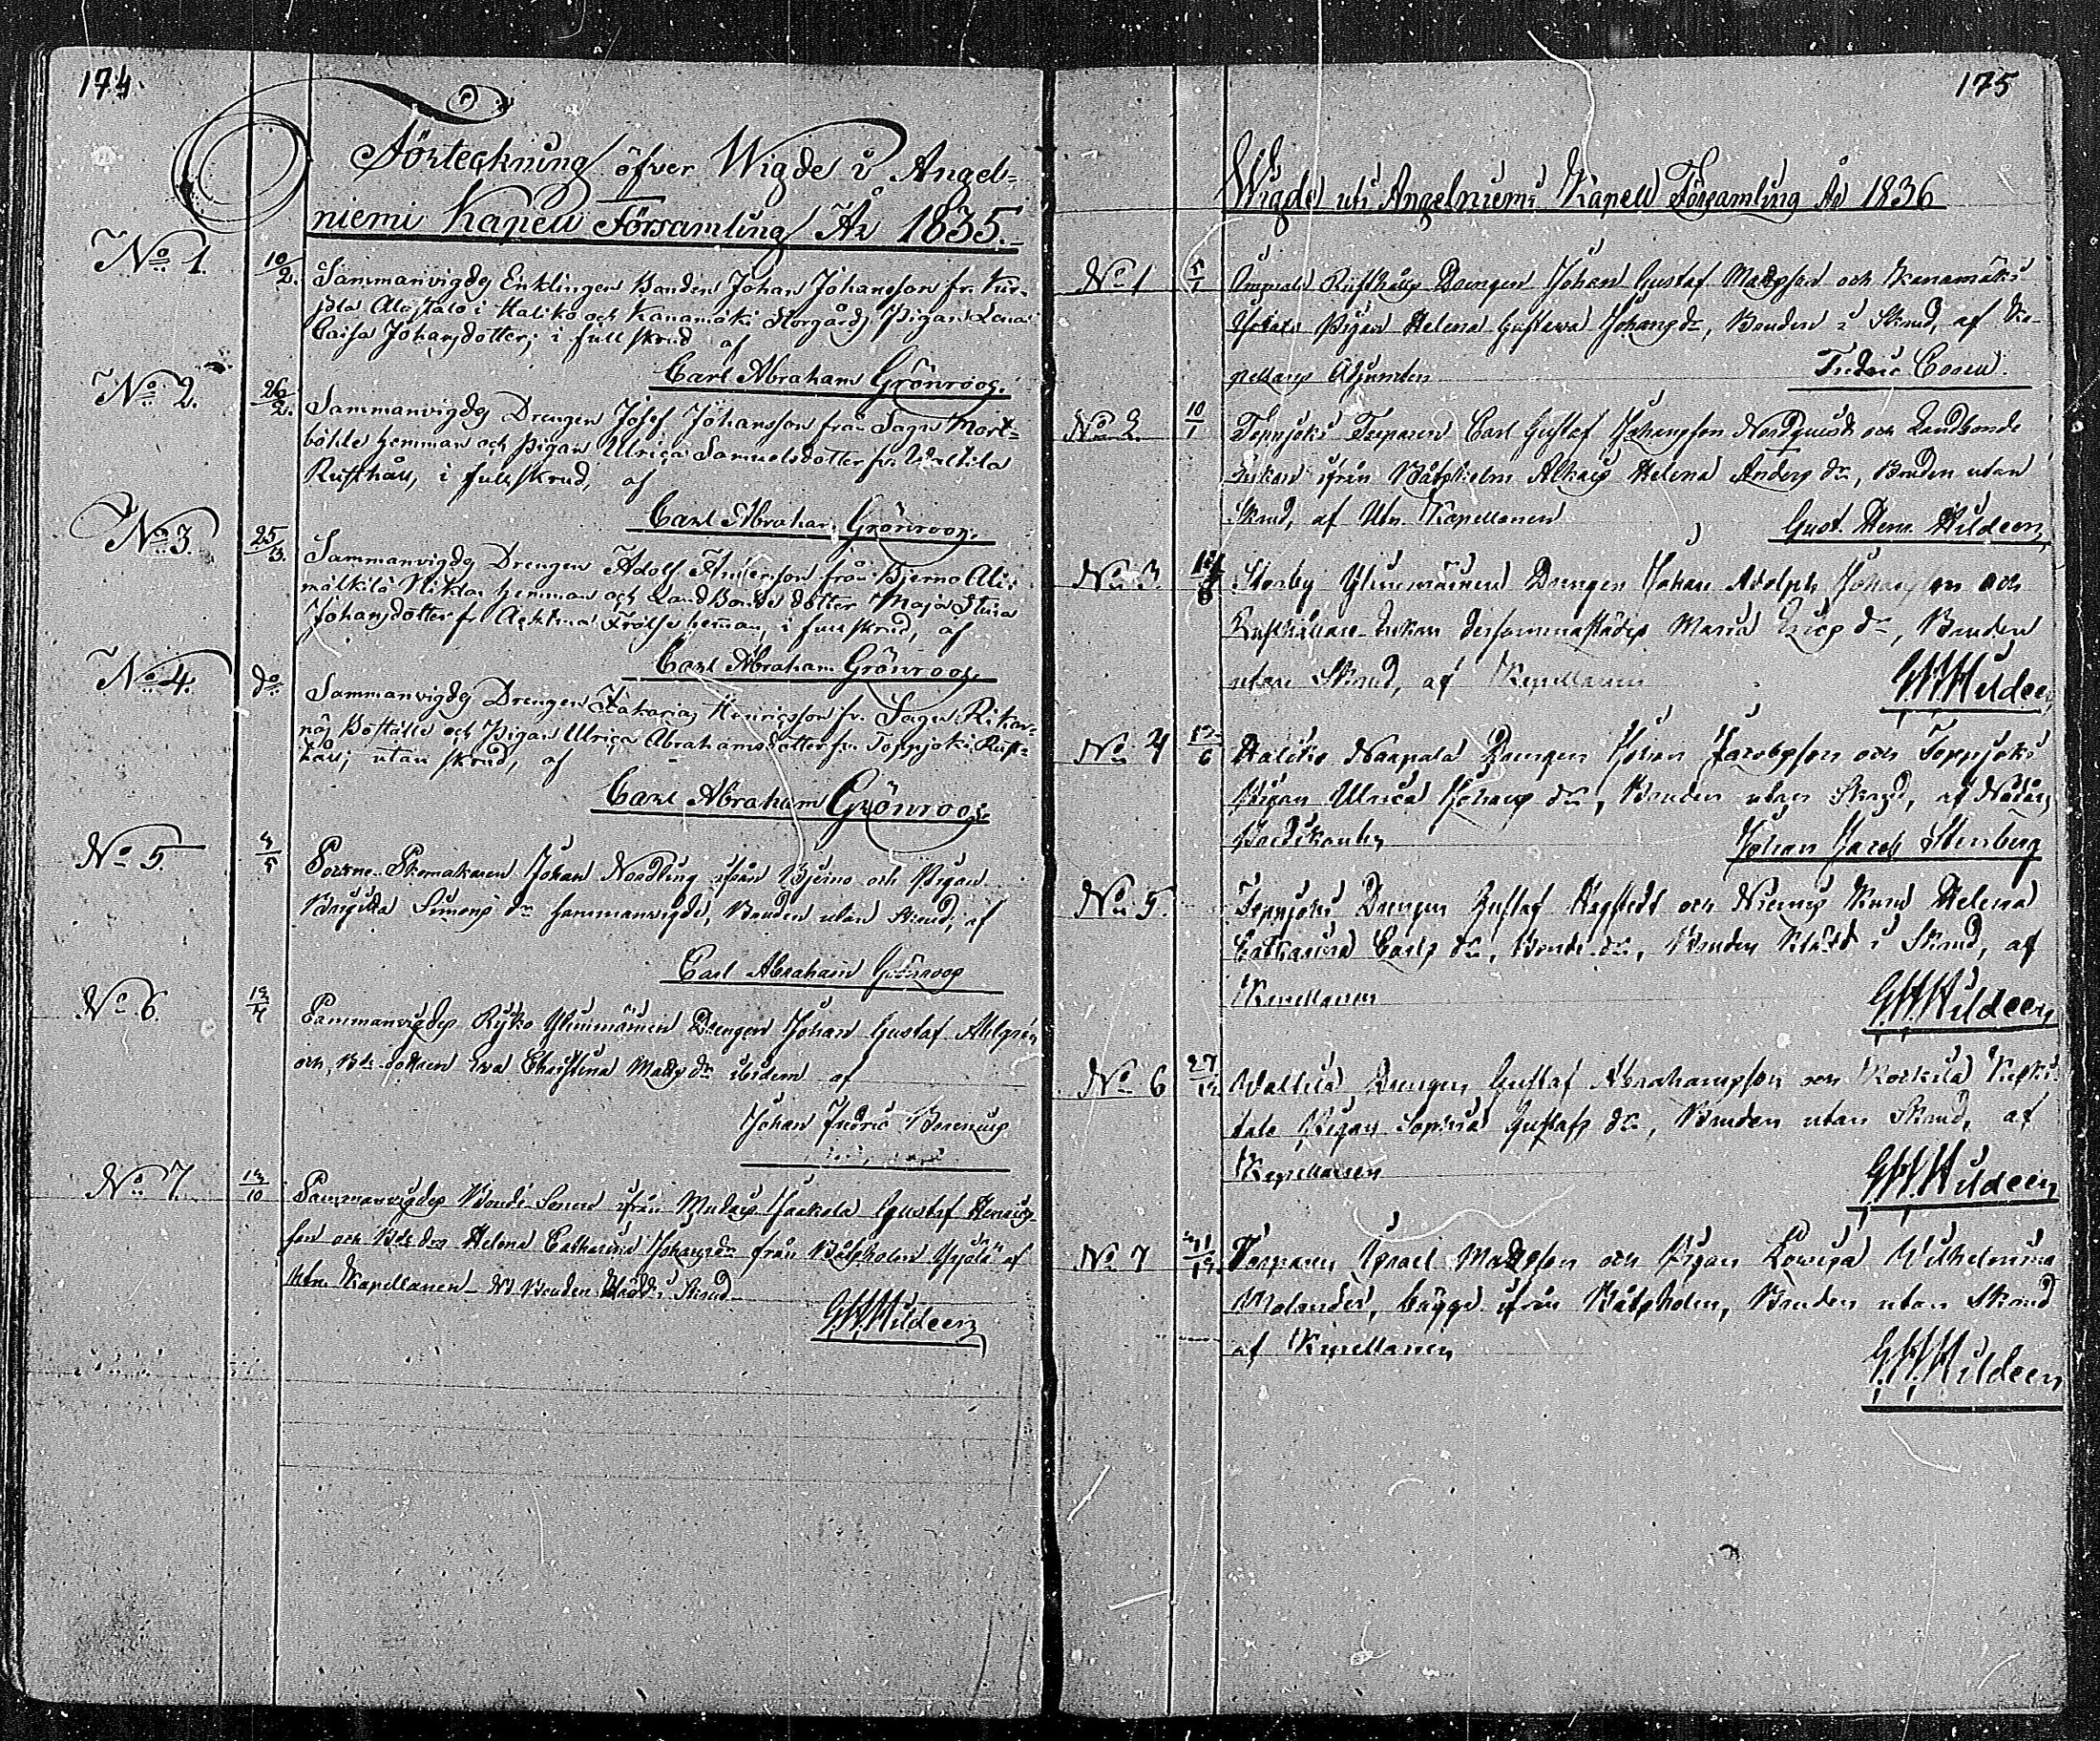 174
Förteckning öfver Wigde i Angel=
niemi Kapell Församling År 1835.
No 1. 10/2. Sammanvigdes Enklingen Bonden Johan Johansson fr.
Alastalo i Haliko och Kanamäki Storgårds Pigan Lena
Caisa Johansdotter, i full skrud af
Carl Abraham Grönroos.
No 2. 26/2. Sammanvigdes Drengen Josef Johansson från Sagu Mort=
böhle hemman och Pigan Ulrica Samuelsdotter fr. Waltila
Rusthåll, i full skrud, af
Carl Abraham Grönroos.
No 3. 25/3. Sammanvigdes Drengen Adolf Andersson från Bjerno Ali=
mälkilä Niklas hemman och Landbonde dotter Maja Stina
Johansdotter fr. Frälse hemman, i full skrud, af
Carl Abraham Grönroos.
No 4. do Sammanvigdes Drengen Zakarias Henricsson fr. Sagu
Boställe och Pigan Ulrica Abrahamsdotter fr. Toppjoki Rust=
håll, utan skrud, af
Carl Abraham Grönroos.
No 5. 3/5 Sockne Skomakaren Johan Nordling ifrån Bjerno och Pigan
Brigitta Simons dr sammanvigde, Bruden utan skrud, af
Carl Abraham Grönroos
No 6. 12/7 Sammanvigdes Ryko Ylinmäinen Drengen Johan Gustaf Ahlgren
och Bde dottren Eva Christina Matts dr ibidem af
Johan Fredric Berenius
No 7. 13/10 Sammanvigdes Bonde Sonen ifrån Jaakola Gustaf Henrics-
son och Bde dra Helena Catharina Johansdr från Båtsholm Yrjölä af
Kapellanen Bruden klädd i Skrud
G.H.Hildeen
175
Wigde uti Angelniemi Kapell Församling År 1836
No 1 5/1 Rusthålls Drengen Johan Gustaf Mattsson och Kanamäki
Pigan Helena Gustava Johans dr, Bruden i Skrud, af Ka-
pellans Adjuncten Fredric
No 2 10/1 Toppjoki Torparen Carl Gustaf Johansson Nordquist och Landbonde
Enkan ifrån Båtsholm Alhais Helena Anders dr, Bruden utan
Skrud, af Kapellanen Gust. Henr. Hildeen
No 3. Storby Ylinmäinen Drengen Johan Adolph Johansson och
Rusthållare Enkan dersammastädes Maria Erics dr, Bruden
utan Skrud, af Kapellanen G.H.Hildeen
No 4 12/6 Haliko Drengen Johan Jacobsson och Toppjoki
Pigan Ulrica Johans dr, Bruden utan Skrud, af Nådårs
Predikanten Johan Jacob Stenberg
No 5. Toppjoki Drengen Gustaf Hagstedt och Niemis Helena
Catharina Carls dr, Bonde dr, Bruden klädd i Skrud, af
Kapellanen G.H.Hildeen
No 6 27/12 Waltila Drengen Gustaf Abrahamsson och Kokkila Keski-
talo Pigan Sophia Gustafs dr, Bruden utan Skrud, af
Kapellanen G.H.Hildeen
No 7 Torparen Israel Mattsson och Pigan Lovisa Wilhelmina
Molander, begge ifrån Båtsholm, Bruden utan Skrud
af Kapellanen G.H.Hildeen